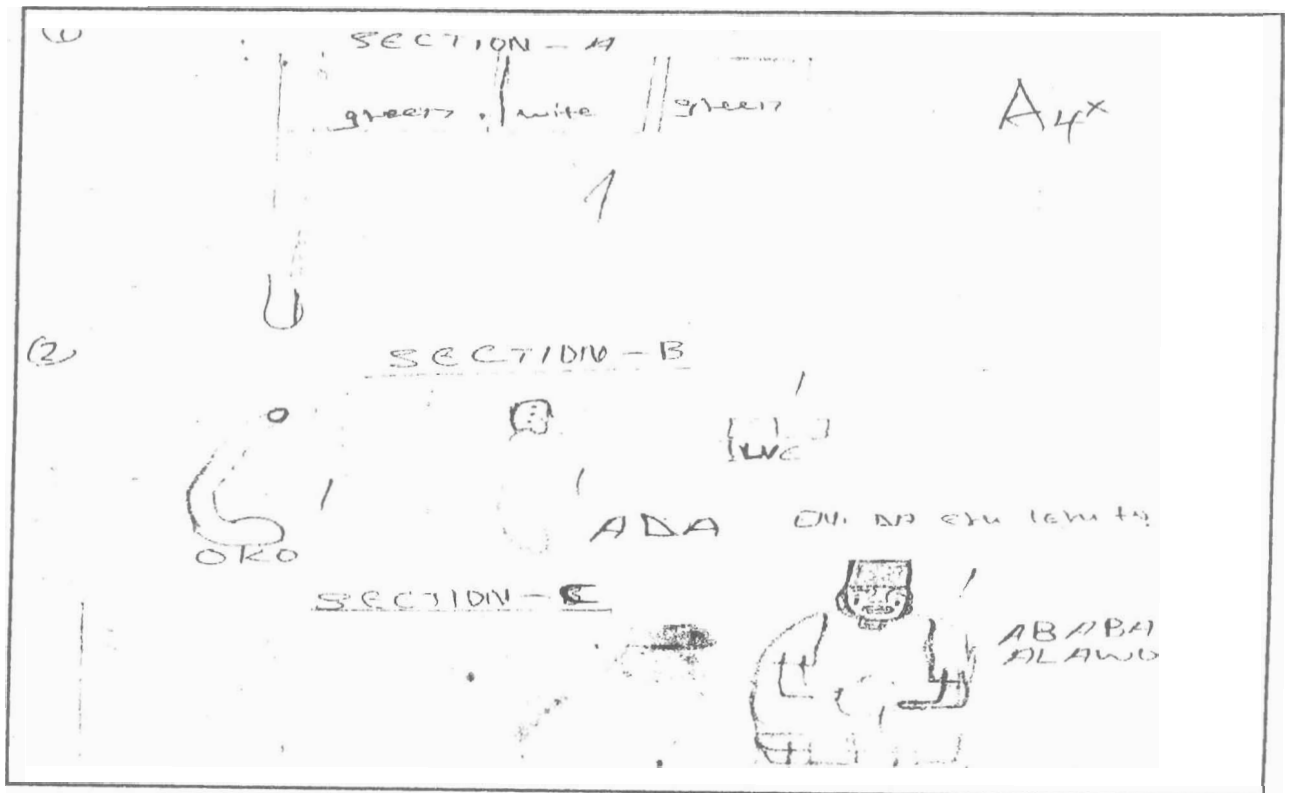 (1)
SECTION - A
green wite green
A4x
1
(2)
SECTION - B
OKO
ADA
SECTION - C
ABABA
ALAWO